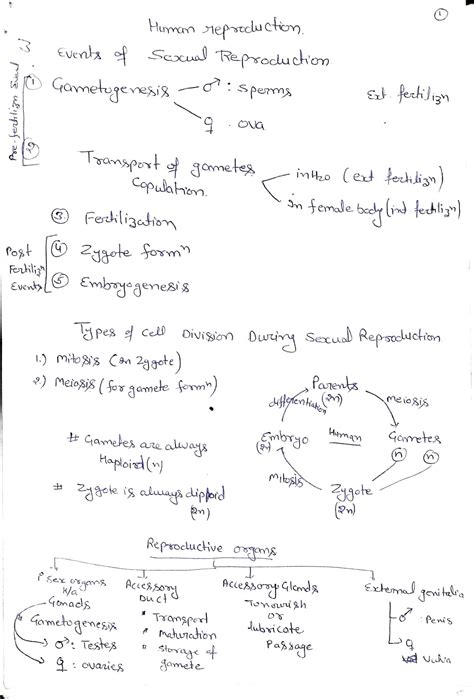 ①
Human reproduction.
Events of Sexual Reproduction
Pre-fertilizn Event
① Gametogenesis — ♂ : sperms
Ext fertilizn
♀ . ova
② Transport of gametes
Copulation.
in H2O (ext fertilizn)
In female body (int fertilizn)
③ Fertilization
Post Fertilizn Events
④ Zygote formn
⑤ Embryogenesis
Types of Cell Division During Sexual Reproduction
1.) Mitosis (In Zygote)
2.) Meiosis (for gamete formn)
Parents
(2n)
differentiation
meiosis
Embryo
(2n)
Human
Gametes
(n) (n)
Mitosis
Zygote
(2n)
# Gametes are always
Haploid (n)
# Zygote is always diploid
(2n)
Reproductive organs
P sex organs
K/a
Gonads
* Gametogenesis
♂ : Testes
♀ : ovaries
Accessory
Duct
* Transport
* Maturation
* Storage of
gamete
Accessory Glands
To nourish
or
lubricate
Passage
External genitelia
♂ . Penis
♀
Vulva